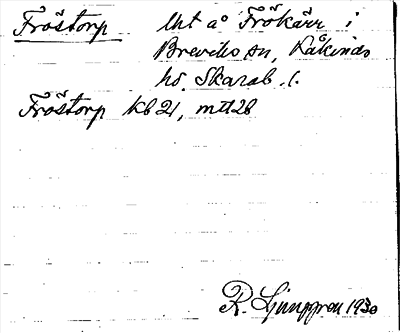 Fröstorp Uht a° Frökärr i
Breviks sn, Kåkinds
hd. Skarab. l.
Fröstorp kb 21, mtl 26
R. Ljunggren 1930